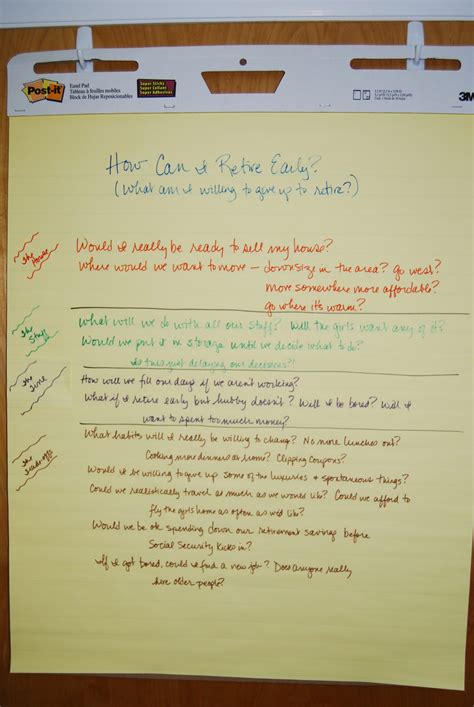 Post-it
Easel Pad
Tableau à feuilles mobiles
Block de Hojas Reposicionables
Super Sticky
Super Collant
Super Adhesivas
3M
How Can I Retire Early?
(What am I willing to give up to retire?)
the House
Would I really be ready to sell my house?
Where would we want to move - downsize in the area? go west?
move somewhere more affordable?
go where it's warm?
the Stuff
What will we do with all our stuff? Will the girls want any of it?
Would we put it in storage until we decide what to do?
Is this just delaying our decisions?!
the Time
How will we fill our days if we aren't working?
What if I retire early but hubby doesn't? Will I be bored? Will I
want to spent too much money?
the trade-offs
What habits will I really be willing to change? No more lunches out?
Cooking more dinners at home? Clipping Coupons?
Would I be willing to give up some of the luxuries & spontaneous things?
Could we realistically travel as much as we would like? Could we afford to
fly the girls home as often as we'd like?
Would we be ok spending down our retirement savings before
Social Security kicks in?
If I got bored, could I find a new job? Does anyone really
hire older people?